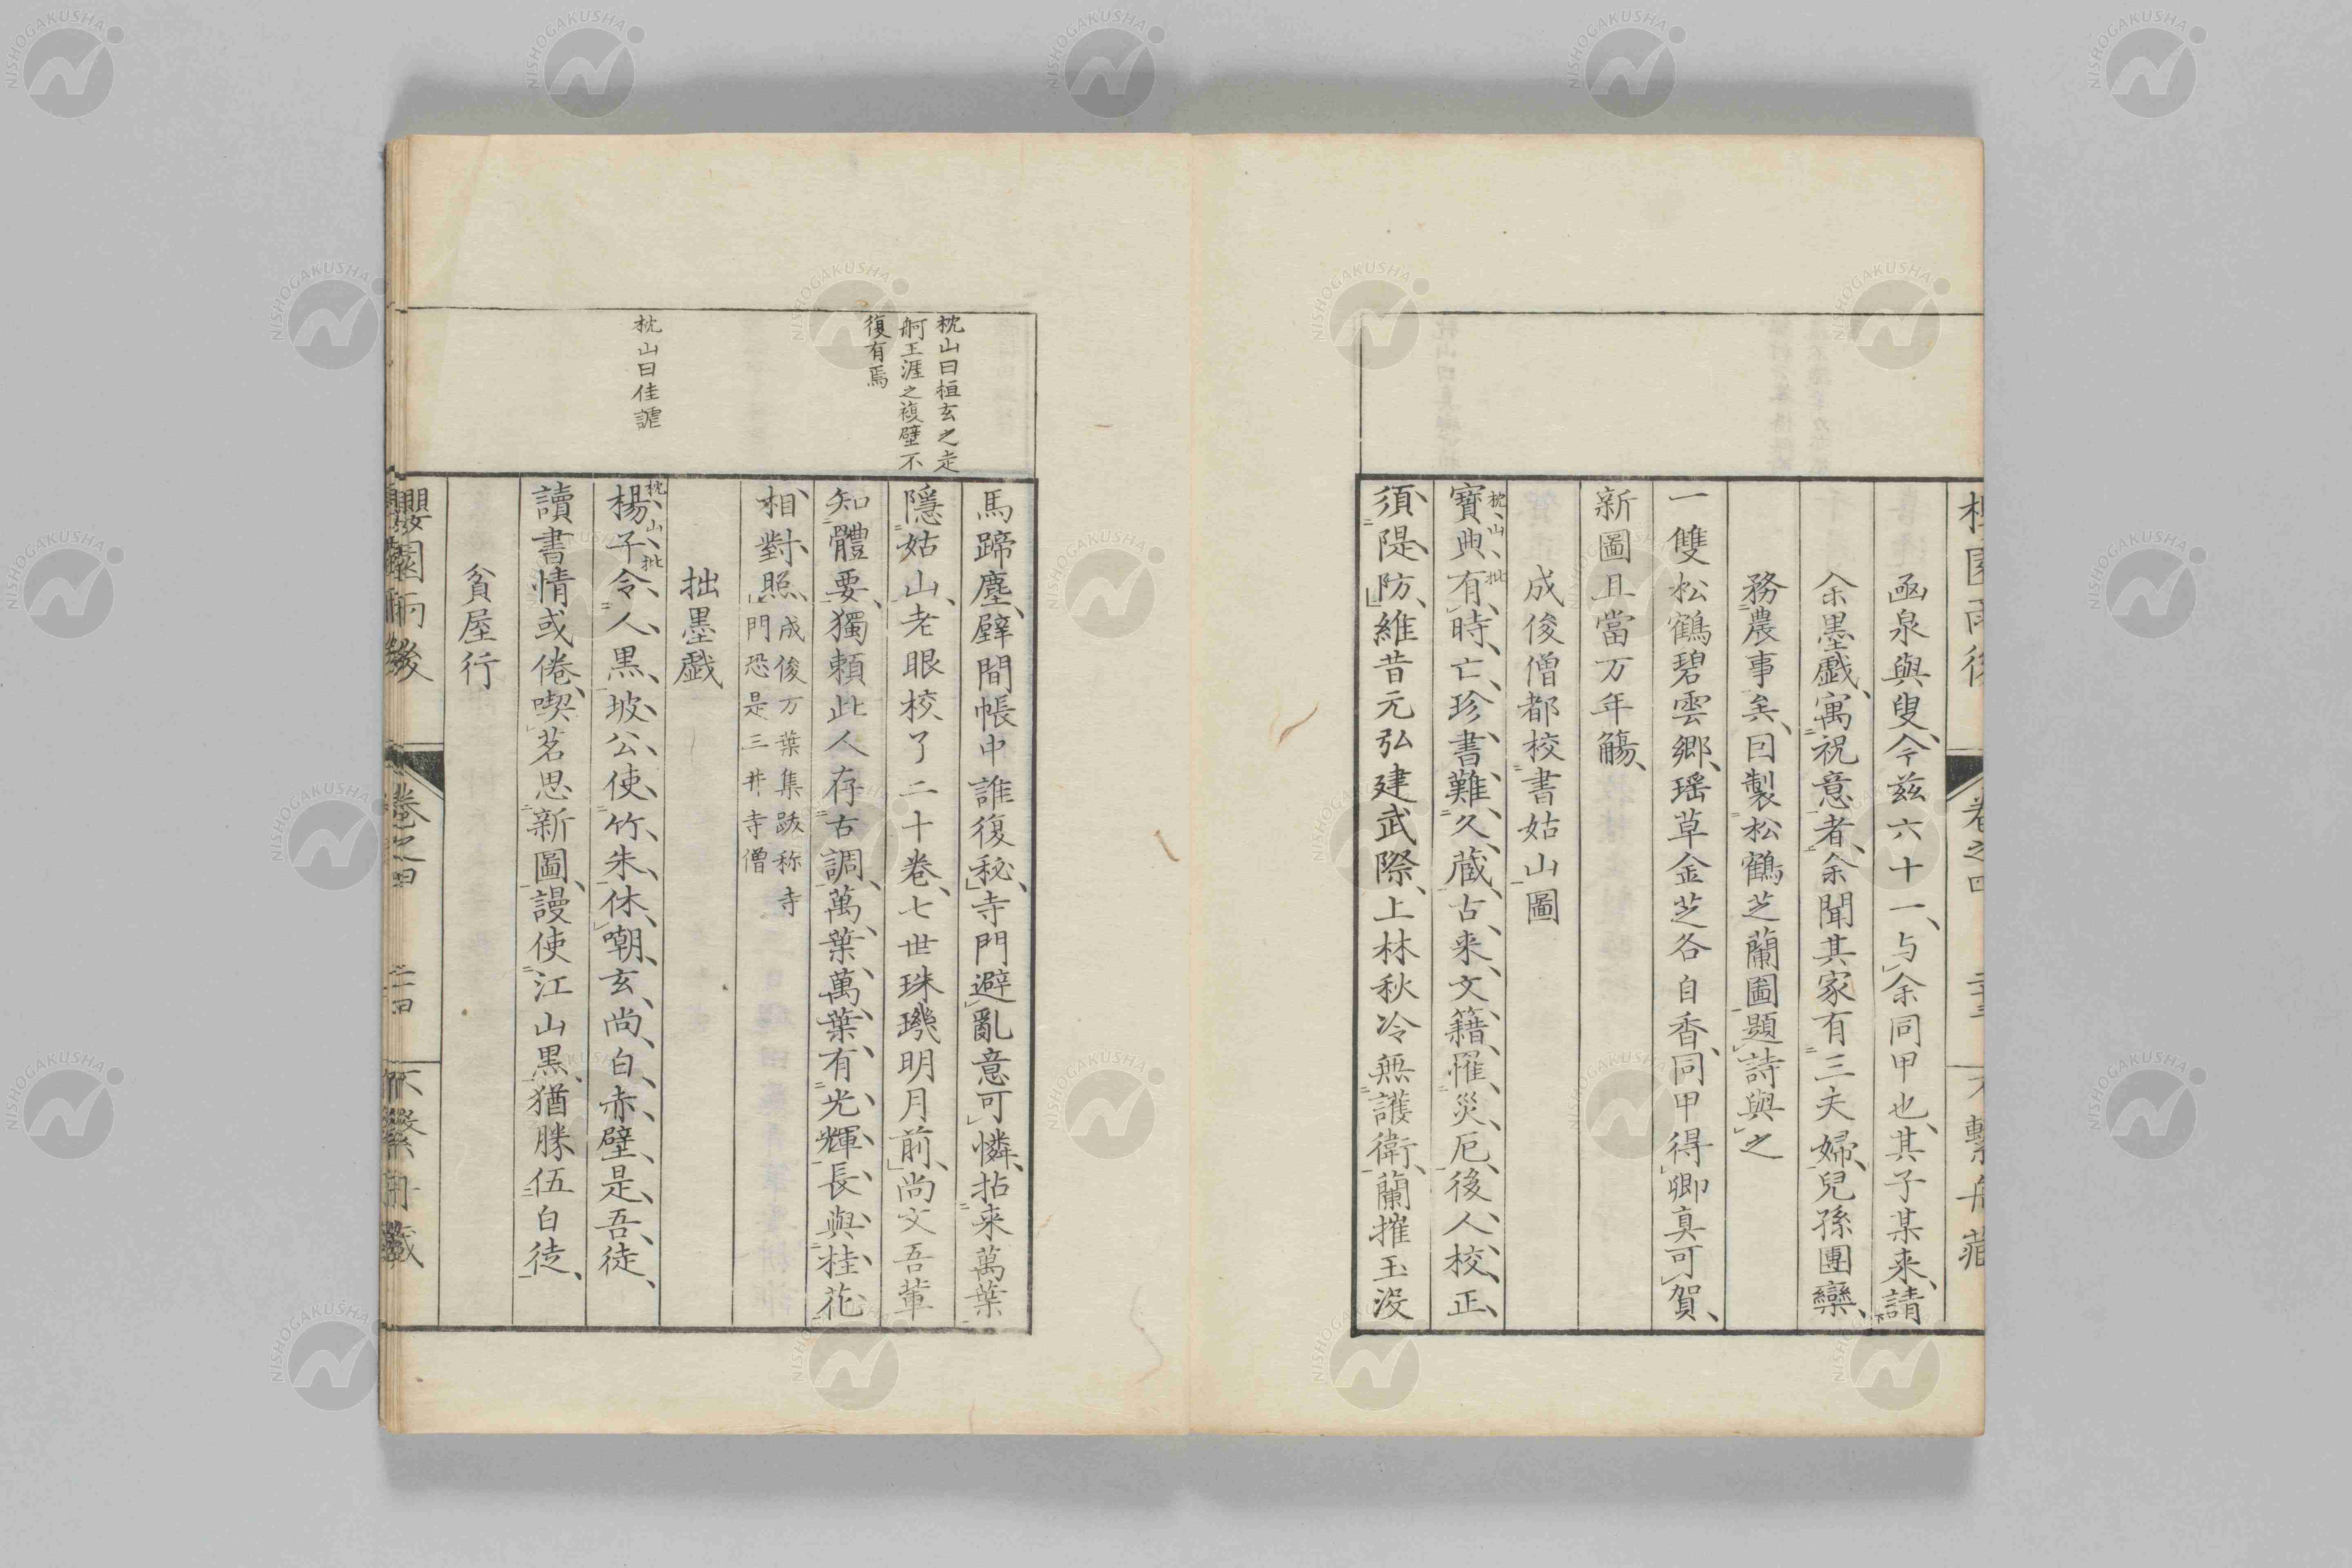 凾泉與叟、今茲六十一、与余同甲也、其子某来、請
余墨戲、寓祝意者、余聞其家有三夫婦、兒孫團欒、
務農事矣、因製松鶴芝蘭圖題詩與之
一雙松鶴碧雲郷、瑶草金芝各自香、同甲得卿真可賀、
新圖且當万年觴、
成俊僧都校書姑山圖
枕山批
寶典有時亡、珍書難久蔵、古来文籍罹災厄、後人校正
須隄防、維昔元弘建武際、上林秋冷無護衛、蘭摧玉没
枕山曰桓玄之走
舸王涯之複壁不
復有焉
馬蹄塵、壁間帳中誰復秘、寺門避亂意可憐、拈来萬葉
隱姑山、老眼校了二十巻、七世珠璣明月前、尚文吾輩
知體要、獨頼此人存古調、萬葉萬葉有光輝、長與桂花
相對照、成俊万葉集跋称寺
門恐是三井寺僧
拙墨戯
枕山曰佳謔
枕山批
楊子令人黒、坡公使竹朱、休嘲玄尚白、赤壁是吾徒、
讀書情或倦、喫茗思新圖、謾使江山黒、猶勝伍白徒、
貧屋行
櫻園雨後 巻之四 二四 不繫舟藏